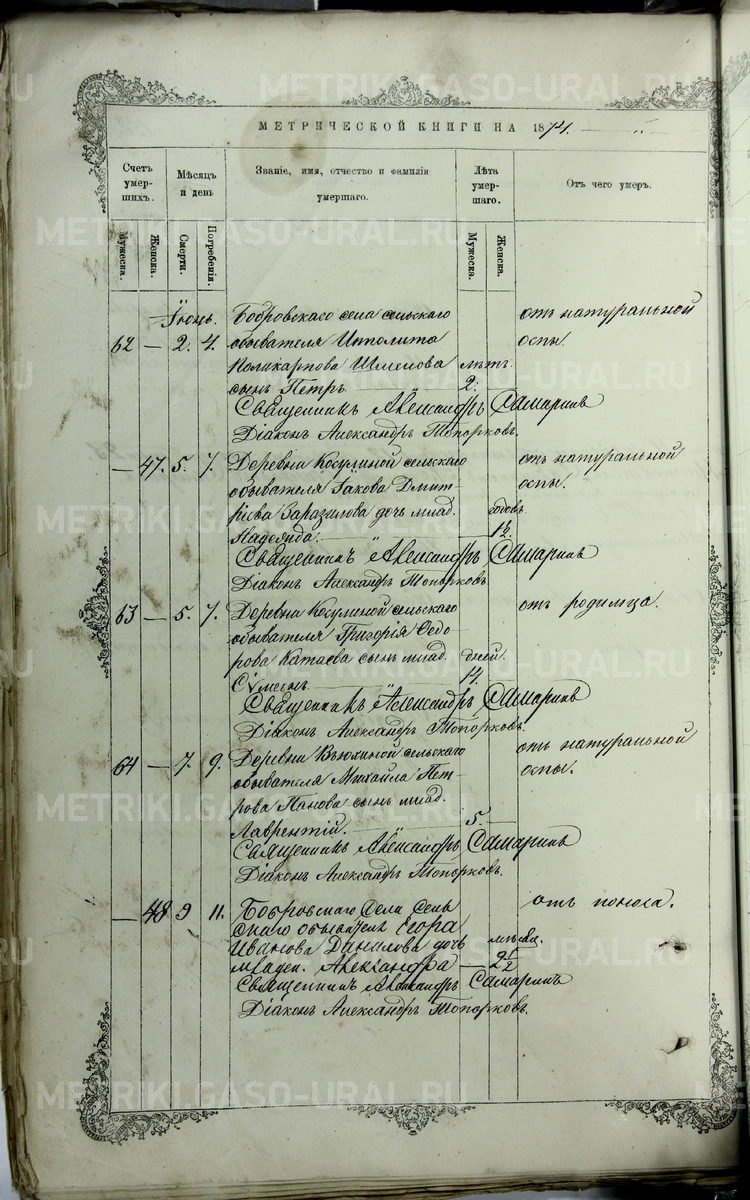 МЕТРИЧЕСКОЙ КНИГИ НА 1874.
Счетъ умер- шихъ.
Мѣсяцъ и день
Званіе, имя, отчество и фамилія умершаго.
Лѣта умер- шаго.
Отъ чего умеръ.
Мужеска.
Женска.
Смерти.
Погребенія.
Мужеска.
Женска.
Іюнь. Бобровскаго села сельскаго отъ натуральной
62 — 2. 4. обывателя Ипполита оспы.
Поликарпова Шмелова лѣтъ
сынъ Петръ 2.
Священникъ Александръ Самаринъ
Діаконъ Александръ Топорковъ.
— 47. 5. 7. Деревни Косулиной сельскаго отъ натуральной
обывателя Іакова Дмит- оспы.
ріева дочь млад. годовъ
Надежда. — " — 1½.
Священникъ Александръ Самаринъ
Діаконъ Александръ Топорковъ
63 — 5. 7. Деревни Косулиной сельскаго отъ родильца.
обывателя Григорія Ѳедо-
рова Катаева сынъ млад. дней.
Сѵмеонъ. 14.
Священникъ Александръ Самаринъ
Діаконъ Александръ Топорковъ.
64 — 7. 9. Деревни Вьюхиной сельскаго отъ натуральной
обывателя Михаила Пет- оспы.
рова Панова сынъ млад.
Лаврентій. 5. —
Священникъ Александръ Самаринъ
Діаконъ Александръ Топорковъ.
— 48 9 11. Бобровскаго Села Сель отъ поноса.
скаго обывателя Егора
Иванова Данилова дочь мѣсяц.
младен. Александра — 2½
Священникъ Александръ Самаринъ
Діаконъ Александръ Топорковъ.
METRIKI.GASO-URAL.RU